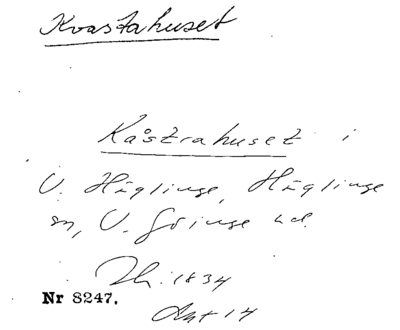 Kvastahuset
Kåstrahuset i
V. Häglinge, Häglinge
sn, V. Göinge hd.
Jb. 1834
Nr 8247.
Ant 14